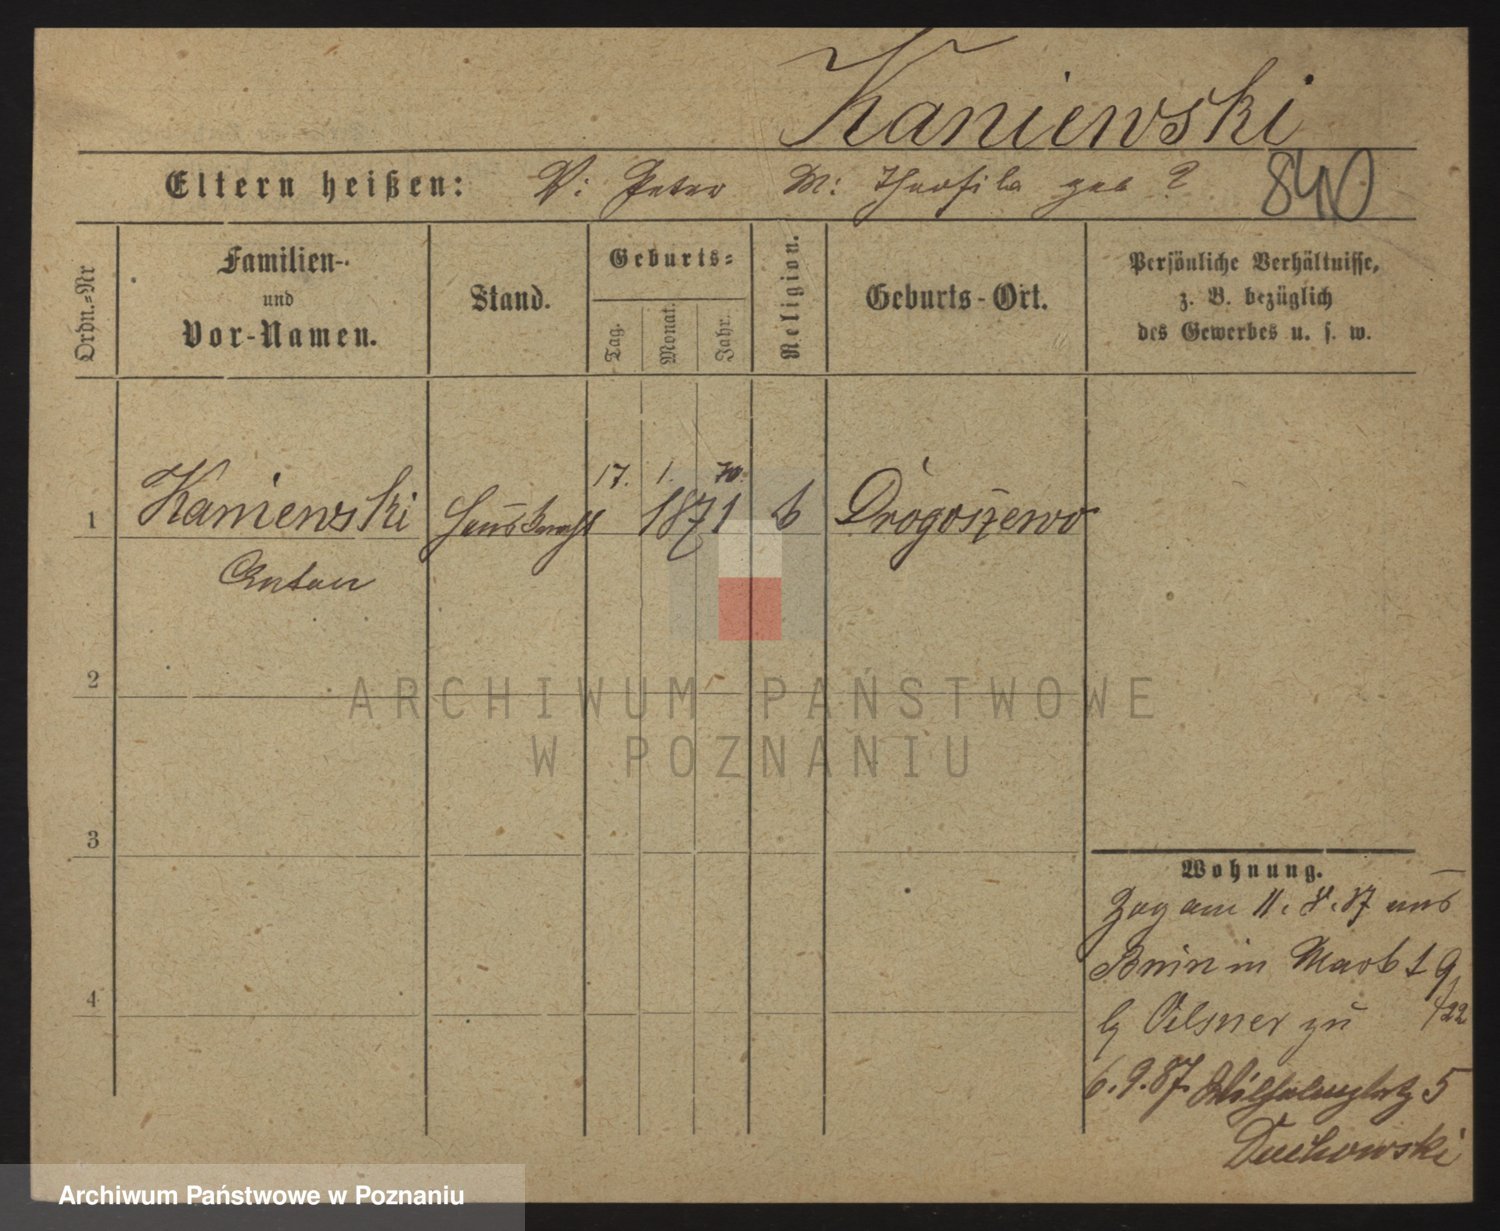 Kaniewski
Eltern heißen: V: Peter M: Theofila geb ? 840
Ordn.=Nr
Familien-
und
Vor-Namen.
Stand.
Geburts=
Tag.
Monat.
Jahr.
Religion.
Geburts-Ort.
Persönliche Verhältnisse,
z. B. bezüglich
des Gewerbes u. s. w.
17. 1. 70.
1 Kaniewski Hausknecht 1871 k Drogoszewo
Anton
2
3
4
Wohnung.
Zog am 11. 8. 87 aus
Bnin in Markt 9
/22
Oelsner zu
6. 9. 87 Wilhelmplatz 5
Duchowski
ARCHIWUM PAŃSTWOWE
W POZNANIU
Archiwum Państwowe w Poznaniu